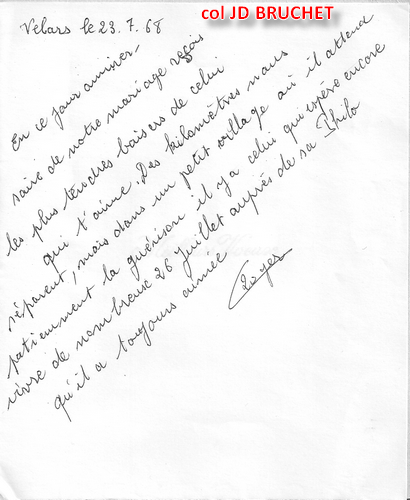 col JD BRUCHET
Velars le 23.7.68
En ce jour anniver-
saire de notre mariage reçois
les plus tendres baisers de celui
qui t'aime. Des kilomètres nous
séparent, mais dans un petit village où il attend
patiemment la guérison il y a celui qui espère encore
vivre de nombreux 26 Juillet auprès de sa Philo
qu'il a toujours aimée